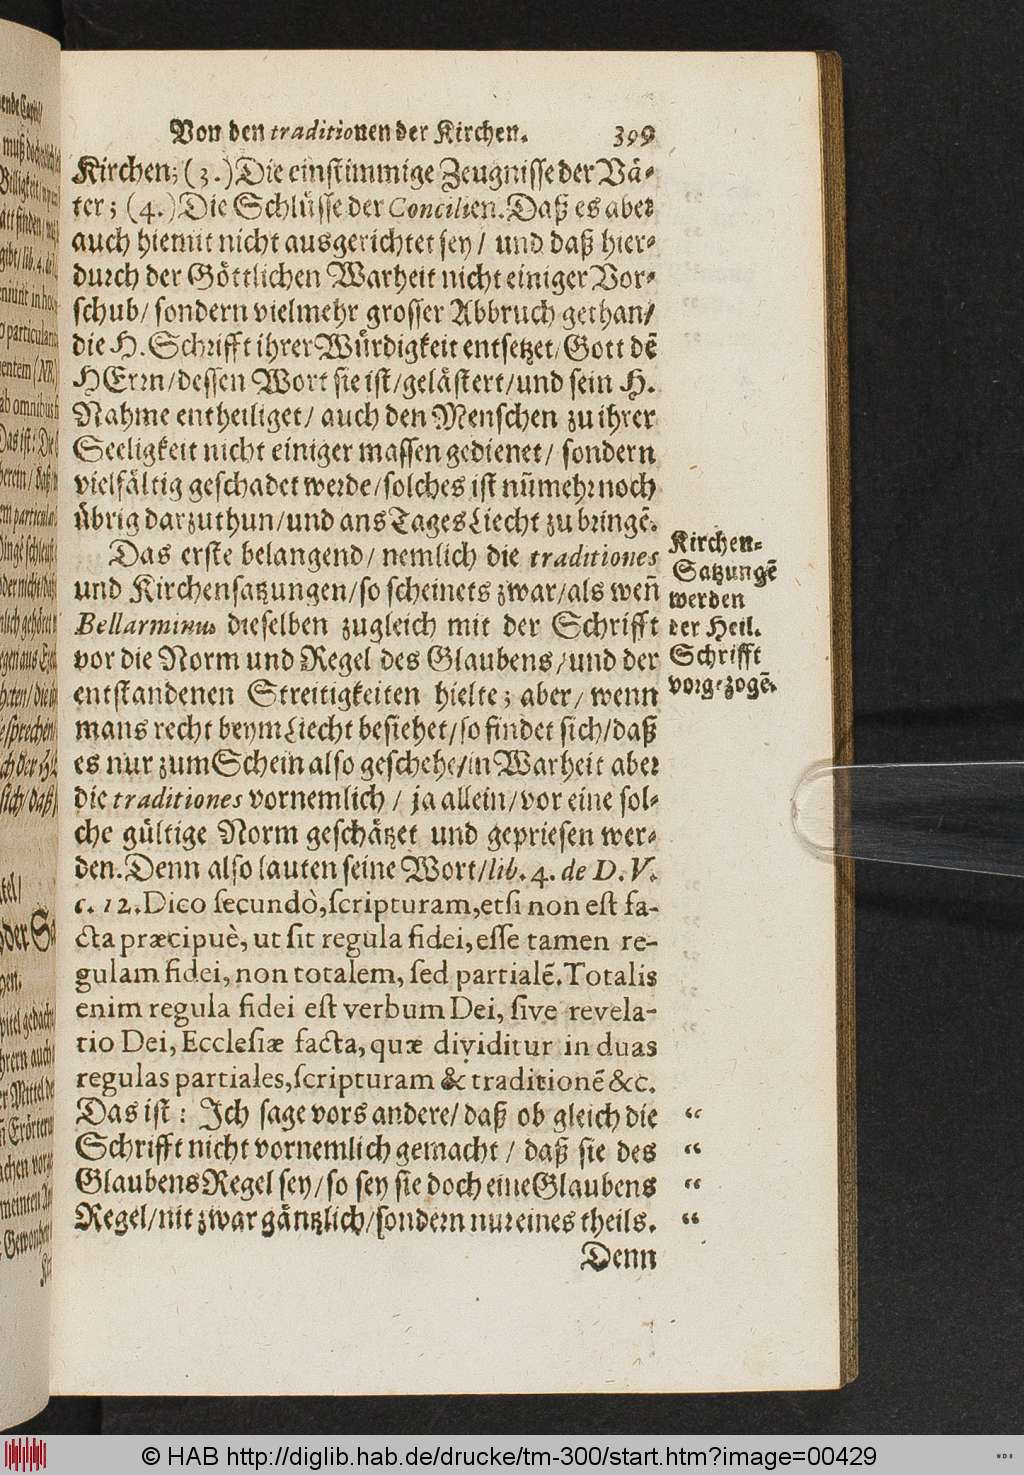 Von den traditionen der Kirchen. 399
Kirchen; (3.) Die einstimmige Zeugnisse der Vä-
ter; (4.) Die Schlüsse der Concilien. Daß es aber
auch hiemit nicht ausgerichtet sey / und daß hier-
durch der Göttlichen Warheit nicht einiger Vor-
schub / sondern vielmehr grosser Abbruch gethan /
die H. Schrifft ihrer Würdigkeit entsetzet / Gott dē
HErrn / dessen Wort sie ist / gelästert / und sein H.
Nahme entheiliget / auch den Menschen zu ihrer
Seeligkeit nicht einiger massen gedienet / sondern
vielfältig geschadet werde / solches ist nūmehr noch
übrig darzuthun / und ans Tages Liecht zu bringē.
Das erste belangend / nemlich die traditiones
und Kirchensatzungen / so scheinets zwar / als weñ
Bellarminus dieselben zugleich mit der Schrifft
vor die Norm und Regel des Glaubens / und der
entstandenen Streitigkeiten hielte; aber / wenn
mans recht beym Liecht besiehet / so findet sich / daß
es nur zum Schein also geschehe / in Warheit aber
die traditiones vornemlich / ja allein / vor eine sol-
che gültige Norm geschätzet und gepriesen wer-
den. Denn also lauten seine Wort / lib. 4. de D. V.
c. 12. Dico secundò, scripturam, etsi non est fa-
cta præcipuè, ut sit regula fidei, esse tamen re-
gulam fidei, non totalem, sed partialē. Totalis
enim regula fidei est verbum Dei, sive revela-
tio Dei, Ecclesiæ facta, quæ dividitur in duas
regulas partiales, scripturam & traditionē &c.
Das ist: Ich sage vors andere / daß ob gleich die “
Schrifft nicht vornemlich gemacht / daß sie des “
Glaubens Regel sey / so sey sie doch eine Glaubens “
Regel / nit zwar gäntzlich / sondern nur eines theils. “
Denn
Kirchen-
Satzungē
werden
der Heil.
Schrifft
vorgezogē.
© HAB http://diglib.hab.de/drucke/tm-300/start.htm?image=00429